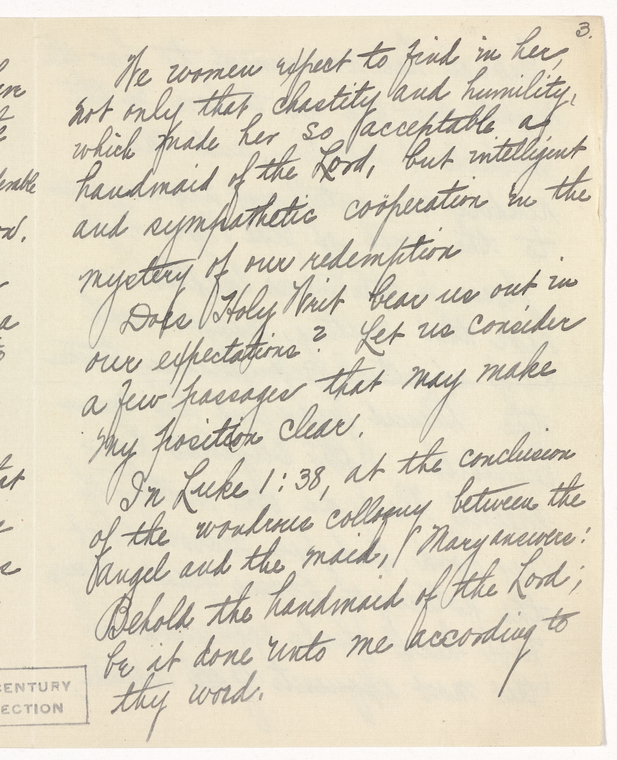 3.
We women expect to find in her,
not only that chastity and humility,
which made her so acceptable as
handmaid of the Lord, but intelligent
and sympathetic coöperation in the
mystery of our redemption
Does Holy Writ bear us out in
our expectations? Let us consider
a few passages that may make
my position clear.
In Luke 1:38, at the conclusion
of the wondrous colloquy between the
angel and the maid, Mary answers:
Behold the handmaid of the Lord;
be it done unto me according to
thy word.
CENTURY
ECTION